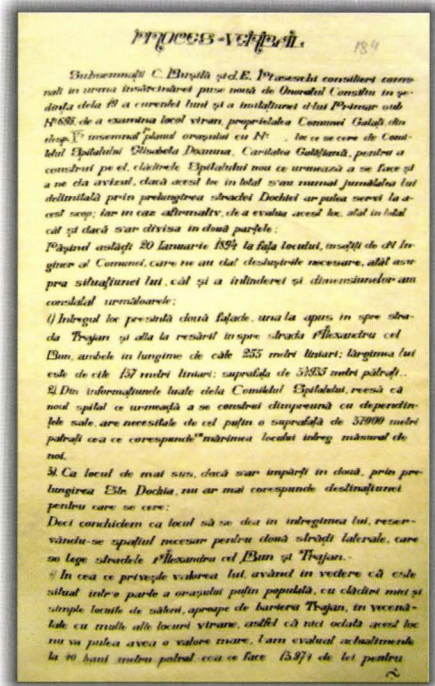 PROCES-VERBAL
184
Subsemnații C. Bușilă și d.E. Plaseschi consilieri comu-
nali în urma însărcinărei puse nouă de Onorabil Consiliu în șe-
dința dela 19 a curentei luni și a invitațiunei d-lui Primar sub
Nº 695, de a examina locul viran, proprietatea Comunei Galați, din
desp. însemnat planul orașului cu Nº , loc ce se cere de Comi-
tetul Spitalului Elisabeta Doamna, Caritatea Gălățiană, pentru a
construi pe el, clădirele Spitalului nou ce urmează a se face și
a ne da avizul, dacă acest loc în total s'au numai jumătatea lui
delimitată prin prelungirea stradei Dochiei ar putea servi la a-
cest scop; iar în caz afirmativ, de a evalua acest loc, atât în total
cât și dacă s'ar divisa în două parțele;
Pășind astăți 20 Ianuarie 1894 la fața locului, însoțiți de dl In-
giner al Comunei, care ne au dat deslușirile necesare, atât asu-
pra situațiunei lui, cât și a întinderei și dimensiunelor am
constatat următoarele;
1) Întregul loc presintă două fațade, una la apus în spre stra-
da Trajan și alta la resărit în spre strada Alexandru cel
Bun, ambele în lungime de câte 255 metri liniari; lărgimea lui
este de cîte 157 metri liniari; suprafața de metri pătrați..
2) Din informațiunele luate dela Comitetul Spitalului, reesă că
noul spital ce urmeață a se construi dimpreună cu dependin-
țele sale, are necesitate de cel puțin o suprafață de metri
pătrați cea ce corespunde mărimea locului întreg măsurat de
noi.
3). Ca locul de mai sus, dacă s'ar împărți în două, prin pre-
lungirea Str. Dochia, nu ar mai corespunde destinațiunei
pentru care se cere;
Deci conchidem ca locul să se dea în întregimea lui, reser-
vându-se spațiul necesar pentru două străți laterale, care
să lege stradele Alexandru cel Bun și Trajan.-
În cea ce privește valorea lui, având în vedere că este
situat într'o parte a orașului puțin populată, cu clădiri mici și
simple locuite de săteni, aproape de bariera Trajan, în vecină-
tate cu multe alte locuri virane, astfel că nici odată acest loc
nu va putea avea o valore mare, l'am evaluat actualmente
la 40 bani metru patrat cea ce face 15.974 de lei pentru